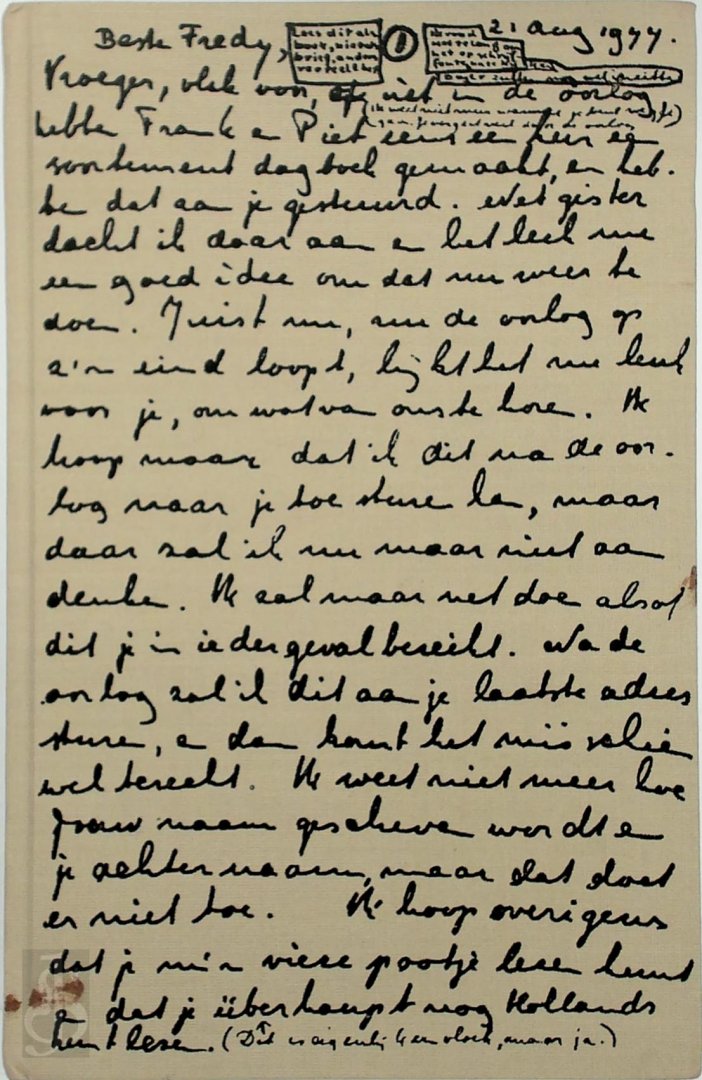 Beste Fredy, 1 21 aug 1944.
Lees dit als
boek, niet als
brief, anders
Vroeger, vlak voor, of niet in de oorlog
hebbe Frank en Piet eens een keer een
soortement dagboek gemaakt, en heb-
be dat aan je gestuurd. Net gister
dacht ik daar aan en het leek me
een goed idee om dat nu weer te
doen. Juist nu, nu de oorlog op
z'n eind loopt, lijkt het me leuk
voor je, om wat van ons te hore. Ik
hoop maar dat ik dit na de oor-
log naar je toe sture kan, maar
daar zal ik nu maar niet aan
denke. Ik zal maar net doen alsof
dit je in ieder geval bereikt. Na de
oorlog zal ik dit aan je laatste adres
sture, en dan komt het misschien
wel terecht. Ik weet niet meer hoe
jouw naam geschreven wordt en
je achternaam, maar dat doet
er niet toe. Ik hoop overigens
dat je m'n vieze pootje lesen kunt
en dat je überhaupt nog Hollands
kunt lesen. (Dit is eigenlijk een vloek, maar ja.)